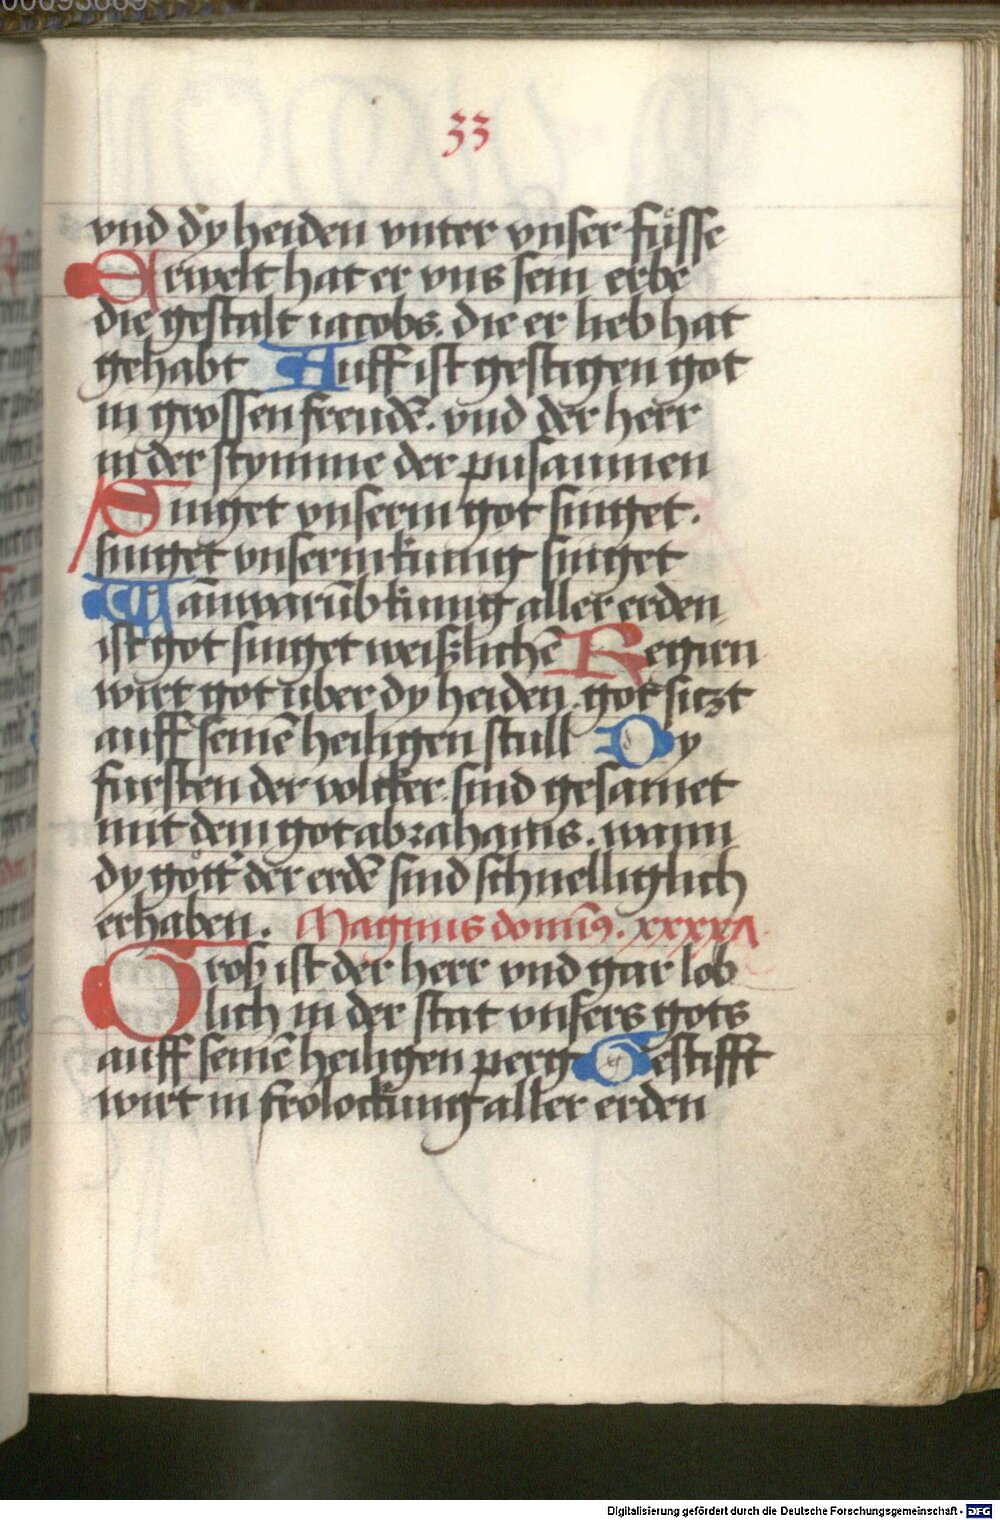 00093669
33
vnd dy heiden vnter vnser füsse
Erwelt hat er vns sein erbe
die gestalt iacobs. die er lieb hat
gehabt Auff ist gestigen got
in grossen freudē. vnd der herr
in der stymme der pusaunen
Singet vnserm got singet.
singet vnserm kunig singet
Wān warūb kunig aller erden
ist got singet weißlichē Regirn
wirt got über dy heiden. got sitzt
auff seinē heiligen stull Dy
fursten der volcker sind gesamet
mit dem got abrahams. wann
dy gött' der erdē sind schnelliglich
erhaben. Magnus domīꝰ. xxxxA
Groß ist der herr vnd gar lob
lich in der stat vnsers gots
auff seinē heiligen perg Gestifft
wirt in frolockung aller erden
Digitalisierung gefördert durch die Deutsche Forschungsgemeinschaft - DFG